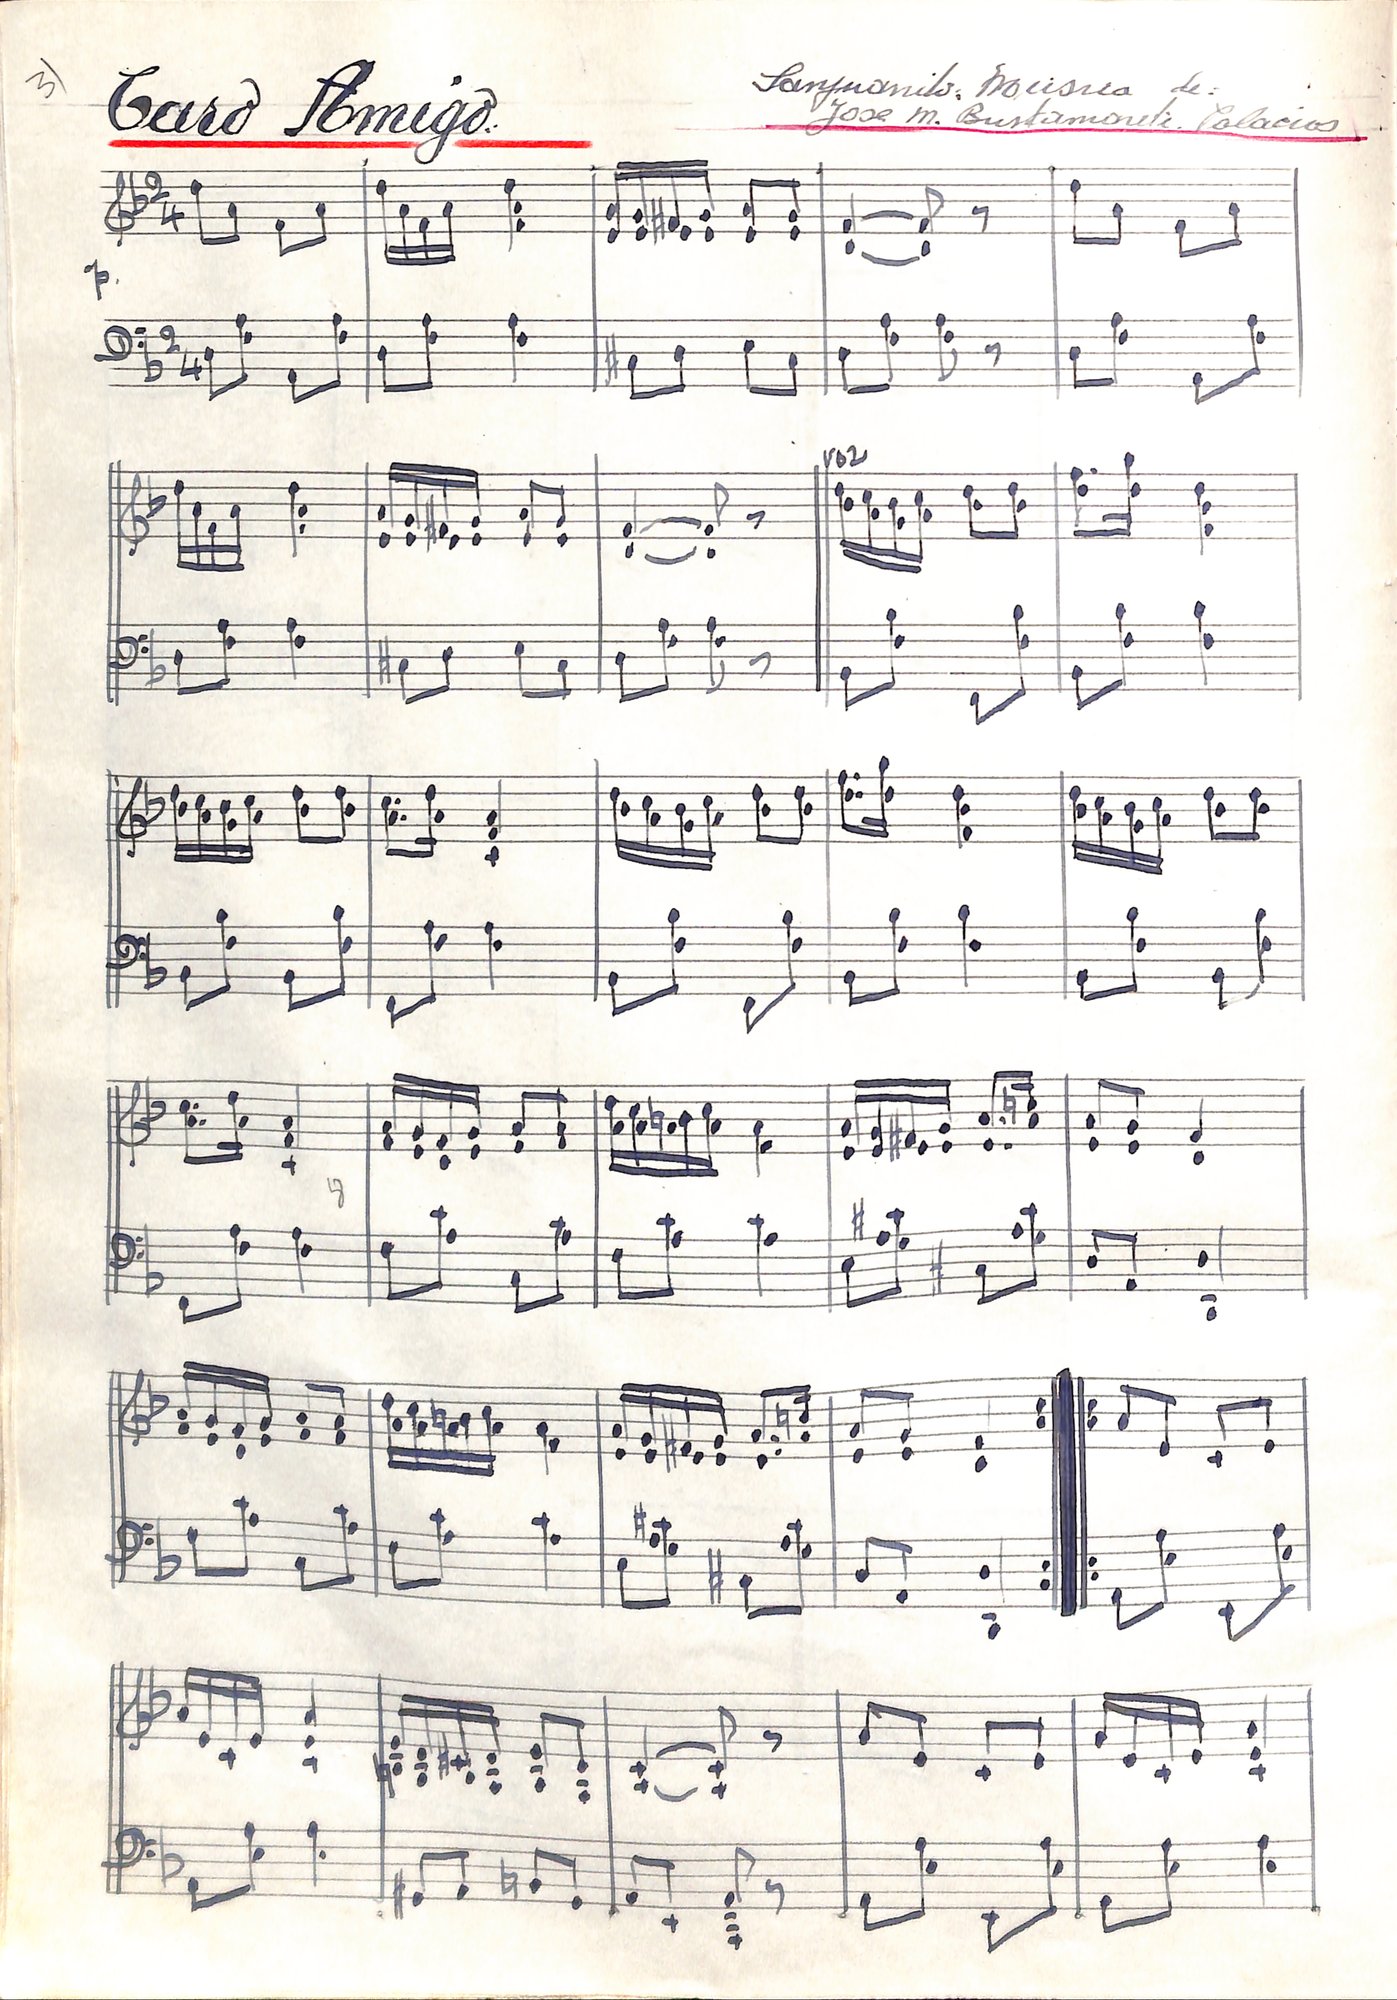 3)
Caro Amigo.
Sanjuanito. Música de:
Jose M. Bustamante. Palacios
2 4
p.
2 4
voz